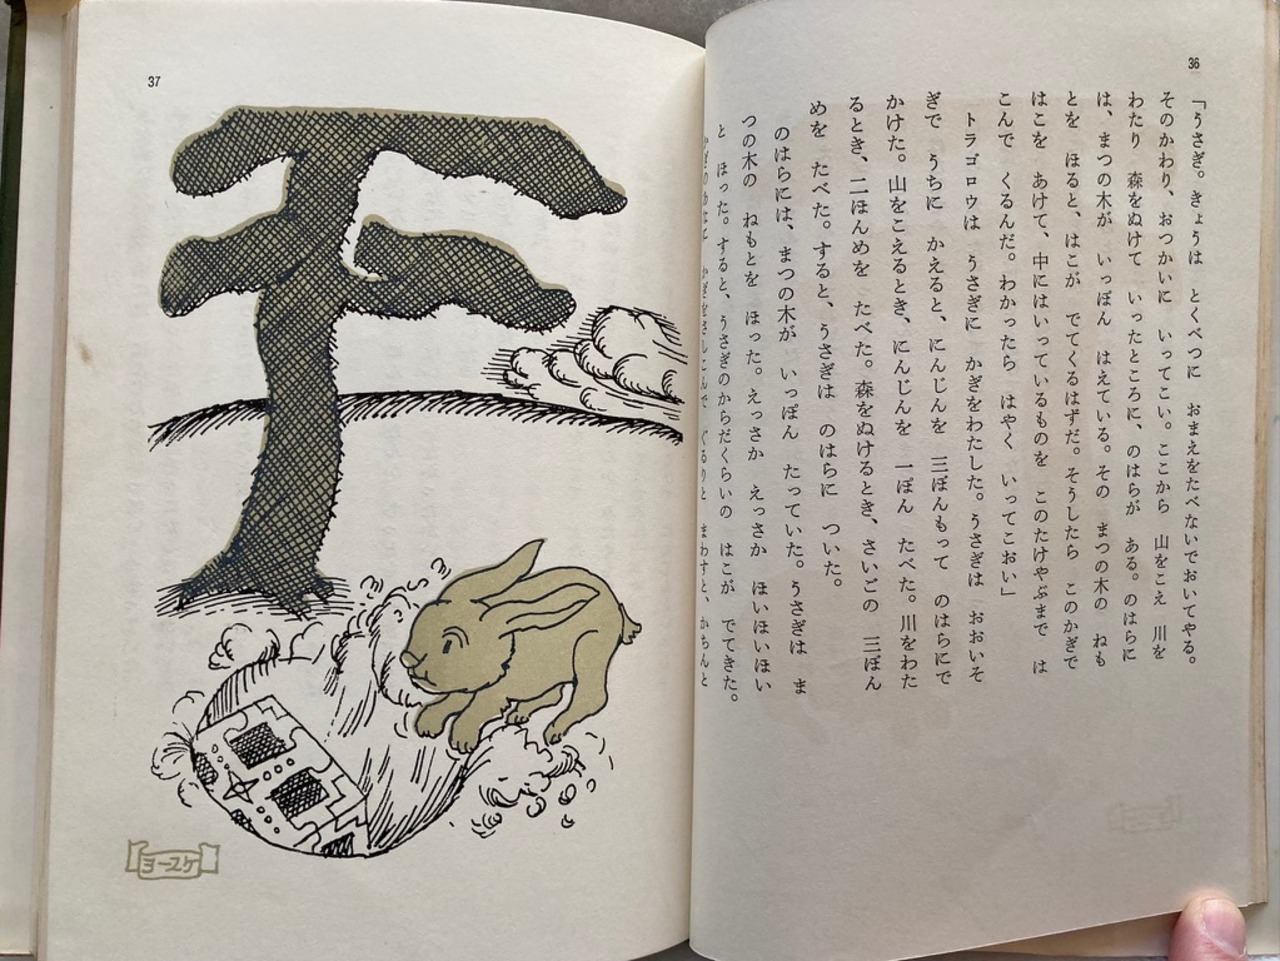 36
「うさぎ。きょうは　とくべつに　おまえをたべないでおいてやる。
そのかわり、おつかいに　いってこい。ここから　山をこえ　川を
わたり　森をぬけて　いったところに、のはらが　ある。のはらに
は、まつの木が　いっぽん　はえている。その　まつの木の　ねも
とを　ほると、はこが　でてくるはずだ。そうしたら　このかぎで
はこを　あけて、中にはいっているものを　このたけやぶまで　は
こんで　くるんだ。わかったら　はやく　いってこおい」
トラゴロウは　うさぎに　かぎをわたした。うさぎは　おおいそ
ぎで　うちに　かえると、にんじんを　三ぼんもって　のはらにで
かけた。山をこえるとき、にんじんを　一ぽん　たべた。川をわた
るとき、二ほんめを　たべた。森をぬけるとき、さいごの　三ぼん
めを　たべた。すると、うさぎは　のはらに　ついた。
のはらには、まつの木が　いっぽん　たっていた。うさぎは　ま
つの木の　ねもとを　ほった。えっさか　えっさか　ほいほいほい
と　ほった。すると、うさぎのからだくらいの　はこが　でてきた。
かぎのあなに　かぎをさしこんで　ぐるりと　まわすと、かちんと
37
ヨースケ